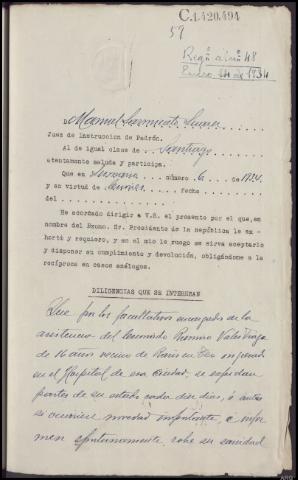 C.1.420.494
59
Regº al nº 48
Enero 11 de 1934
D. Manuel Sarmiento Suarez
Juez de Instrucción de Padrón.
Al de igual clase de Santiago
atentamente saluda y participa.
Que en sumario número 6 de 1934
y en virtud de fecha
del
He acordado dirigir a V.S. el presente por el que, en
nombre del Excmo. Sr. Presidente de la república le ex-
hortó y requiero, y en el mío le ruego se sirva aceptarlo
y disponer su cumplimiento y devolución, obligándome a lo
recíproco en casos análogos.
DILIGENCIAS QUE SE INTERESAN
Que por los facultativos encargados de la
asistencia del lesionado Romero
de 16 años vecino de ingresado
en el Hospital de esa Ciudad, se expidan
partes de su estado cada diez días, ó antes
si ocurriere novedad importante, é infor
men oportunamente sobre su sanidad